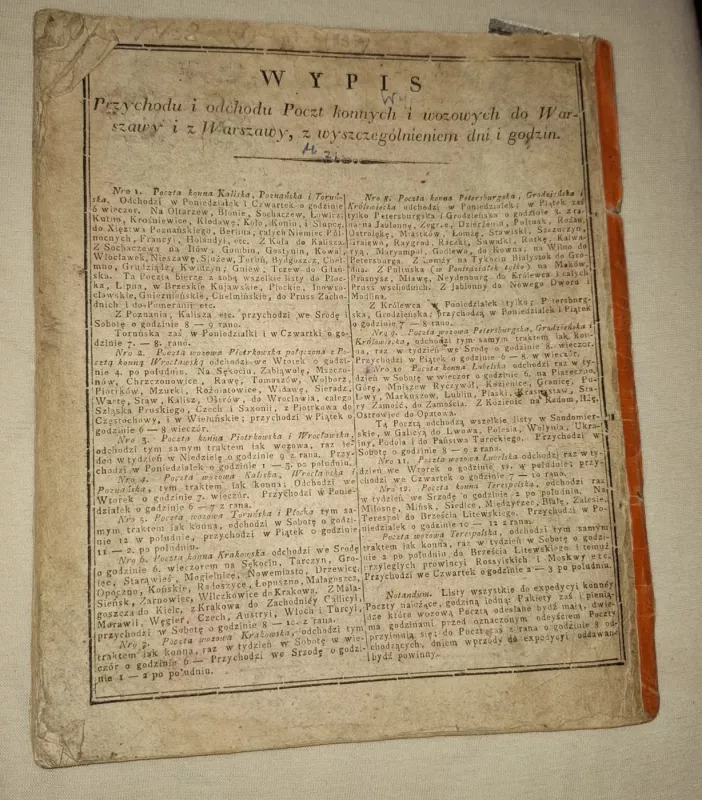 WYPIS
Przychodu i odchodu Poczt konnych i wozowych do War-
szawy i z Warszawy, z wyszczególnieniem dni i godzin.
Nro 1. Poczta konna Kaliska, Poznańska i Toruń-
ska, Odchodzi w Poniedziałek i Czwartek o godzinie
6 wieczor. Na Ołtarzew, Błonie, Sochaczew, Łowicz,
Kutno, Krośniewice, Kłodawę, Koło, Konin, i Słupcę,
do Xięztwa Poznańskiego, Berlina, całych Niemiec Pół-
nocnych, Francyi, Holandyi, etc. Z Koła do Kalisza.
Z Sochaczewy na Iłów, Gombin, Gostynin, Kowal,
Włocławek, Nieszawę, Służew, Toruń, Bydgoszcz, Cheł-
mno, Grudziądz, Kwidzyn, Gniew, Tczew do Gdań-
ska. Ta Poczta bierze z sobą wszelkie listy do Płoc-
ka, Lipna, w Brzeskie Kujawskie, Płockie, Inowro-
cławskie, Gnieznińskie, Chełmińskie, do Prus Zacho-
dnich i do Pomeranii etc.
Z Poznania, Kalisza etc. przychodzi we Srodę i
Sobotę o godzinie 8 — 9 rano.
Toruńska zaś w Poniedziałki i w Czwartki o go-
dzinie 7. — 8. rano.
Nro 2. Poczta wozowa Piotrkowska połączona z Po-
cztą konną Wrocławską odchodzi we Wtorek o godzi-
nie 4. po południu. Na Sękocin, Zabiąwolę, Mszczo-
nów, Chrzczonowice, Rawę, Tomaszów, Wolborz,
Piotrków, Mzurki, Rożniatowice, Widawę, Sieradz,
Wartę, Staw, Kalisz, Ostrów, do Wrocławia, całego
Szląska Pruskiego, Czech i Saxonii, z Piotrkowa do
Częstochowy, i w Wieluńskie; przychodzi w Piątek o
godzinie 6 — 8 wieczór.
Nro 3. Poczta konna Piotrkowska i Wrocławska,
odchodzi tym samym traktem iak wozowa, raz ty-
dzeń w tydzień w Niedzielę o godzinie 9 z rana. Przy-
chodzi w Poniedziałek o godzinie 1 — 3. po południu.
Nro 4. Poczta wozowa Kaliska, Wrocławska i
Poznańska, tym traktem iak konna. Odchodzi we
Wtorek o godzinie 7. wieczór. Przychodzi w Ponie-
działek o godzinie 6 — 7 z rana.
Nro 5. Poczta wozowa Toruńska i Płocka tym sa-
mym traktem iak konna, odchodzi w Sobotę o godzi-
nie 12 w południe, przychodzi w Piątek o godzinie
11 — 2. po południu.
Nro 6. Poczta konna Krakowska odchodzi we Srodę
o godzinie 6. wieczorem na Sękocin, Tarczyn, Gro-
iec, Starąwieś, Magielnicę, Nowemiasto, Drzewicę,
Opoczno, Końskie, Radoszyce, Łopuszno, Małagoszcz,
Sieńsk, Żarnowiec, Wilczkowice do Krakowa. Z Mała-
goszcza do Kielc, z Krakowa do Zachodniéy Gallicyi,
Morawii, Węgier, Czech, Austryi, Włoch i Turcyi,
przychodzi w Sobotę o godzinie 8 — 10. z rana.
Nro 7. Poczta wozowa Krakowska, odchodzi tym
traktem iak konna, raz w tydzień w Sobotę w wie-
czór o godzinie 6 — Przychodzi we Srzodę o godzi-
nie 1 — 2 po południu.
Nro 8. Poczta konna Petersburgska, Grodzieńska i
Królewiecka odchodzi w Poniedziałek i w Piątek zaś
tylko Petersburgska i Grodzieńska o godzinie z ra-
na na Jabłonnę, Zegrze, Dzierżenin, Pułtusk, Rożan,
Ostrołękę, Miastków, Łomżę, Stawiski, Szczuczyn,
Graiewo, Raygrod, Raczki, Suwałki, Rutkę, Kalwa-
ryą, Maryampol, Godlewo, do Kowna, na Wilno do
Petersburga. Z Łomży na Tykocin Białystok do Gro-
dna. Z Pułtuska (w Poniedziałek tylko) na Maków,
Przasnysz, Mławę, Neydenburg do Królewca i całych
Prus wschodnich. Z Jabłonny do Nowego Dworu i
Modlina.
Z Królewca w Poniedziałek tylko, Petersburg-
ska, Grodzieńska, przychodzą w Poniedziałek i Piątek
o godzinie 7 — 8 rano.
Nro 9. Poczta wozowa Petersburgska, Grodzieńska i
Królewiecka, odchodzi tym samym traktem iak kon-
na, raz w tydzień we Srodę o godzinie 8. wieczor.
Przychodzi w Piątek o godzinie 6 — 8. w wieczór.
Nro 10 Poczta konna Lubelska odchodzi raz w ty-
dzień w Sobotę w wieczor o godzinie 6, na Piaseczno,
Górę, Mniszew Ryczywół, Kozienice, Granicę, Pu-
ławy, Markuszow, Lublin, Piaski, Krasnystaw, Sta-
ry Zamość, do Zamościa. Z Kozienic na Radom, Iłżę,
Ostrowiec do Opatowa.
Tą Pocztą odchodzą wszelkie listy w Sandomier-
skie, w Galicyą do Lwowa, Polesia, Wołynia, Ukra-
iny, Podola i do Państwa Tureckiego. Przychodzi w
Sobotę o godzinie 8 — 9 z rana.
Nro 11. Poczta wozowa Lubelska odchodzi raz w ty-
dzień we Wtorek o godzinie 12. w południe; przy-
chodzi we Czwartek o godzinie 7 — 10 rano.
Nro 12. Poczta konna Terespolska, odchodzi raz
w tydzień we Srzodę o godzinie 2 po południu. Na
Miłosnę, Mińsk, Siedlce, Międzyrzec, Białę, Zalesie,
Terespol do Brześcia Litewskiego. Przychodzi w Po-
niedziałek o godzinie 10 — 12 rana.
Poczta wozowa Terespolska, odchodzi tym samym
traktem iak konna, raz w tydzień w Sobotę o godzi-
nie 2 po południu do Brześcia Litewskiego i temuż
przyległych prowincyi Rossyiskich i Moskwy etc.
Przychodzi we Czwartek o godzinie 2 — 3 po południu.
Notandum. Listy wszystkie do expedycyi konnéy
Poczty należące, godziną iedną; Pakiety zaś i pienią-
dze które wozową Pocztą odesłane bydź maią, dwie-
ma godzinami przed oznaczonym odeyściem Poczty
przyimuią się; do Poczty zaś z rana o godzinie 8 od-
chodzących, dniem wprzody do expedycyi oddawan-
bydź powinny.